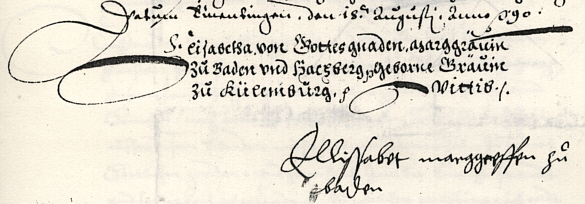 Datum Emendingen, den 18. Augustj. Anno. 90.
Elisabetha, von Gottes gnaden, Marggräuin
zu Baden vnd Hachberg, Geborne Gräuin
zu Külemburg, Wittib.
Elissabet marggreffen zu
baden